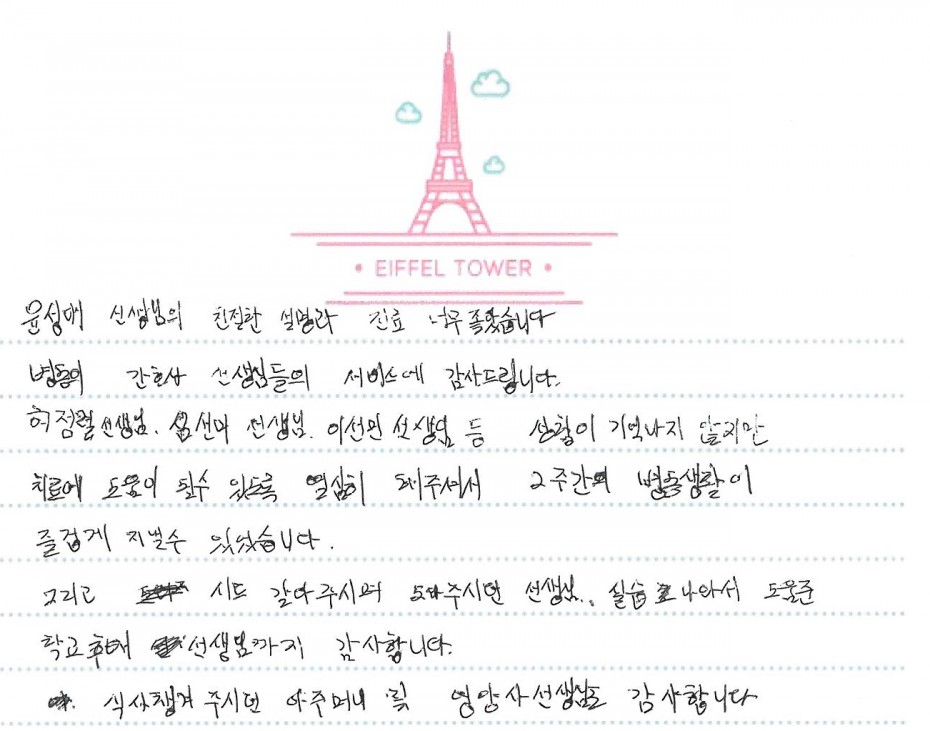 EIFFEL TOWER
윤성배 선생님의 친절한 설명과 진료 너무 좋았습니다
병동의 간호사 선생님들의 서비스에 감사드립니다.
허정렬선생님. 선생님. 이선민 선생님 등 성함이 기억나지 않지만
치료에 도움이 될수 있도록 열심히 해주셔서 2주간의 병동생활이
즐겁게 지낼수 있었습니다.
그리고 시트 갈아주시며 도와주시던 선생님, 실습 나와서 도움준
학교후배 선생님까지 감사합니다.
식사챙겨 주시던 아주머니 및 영양사선생님도 감사합니다